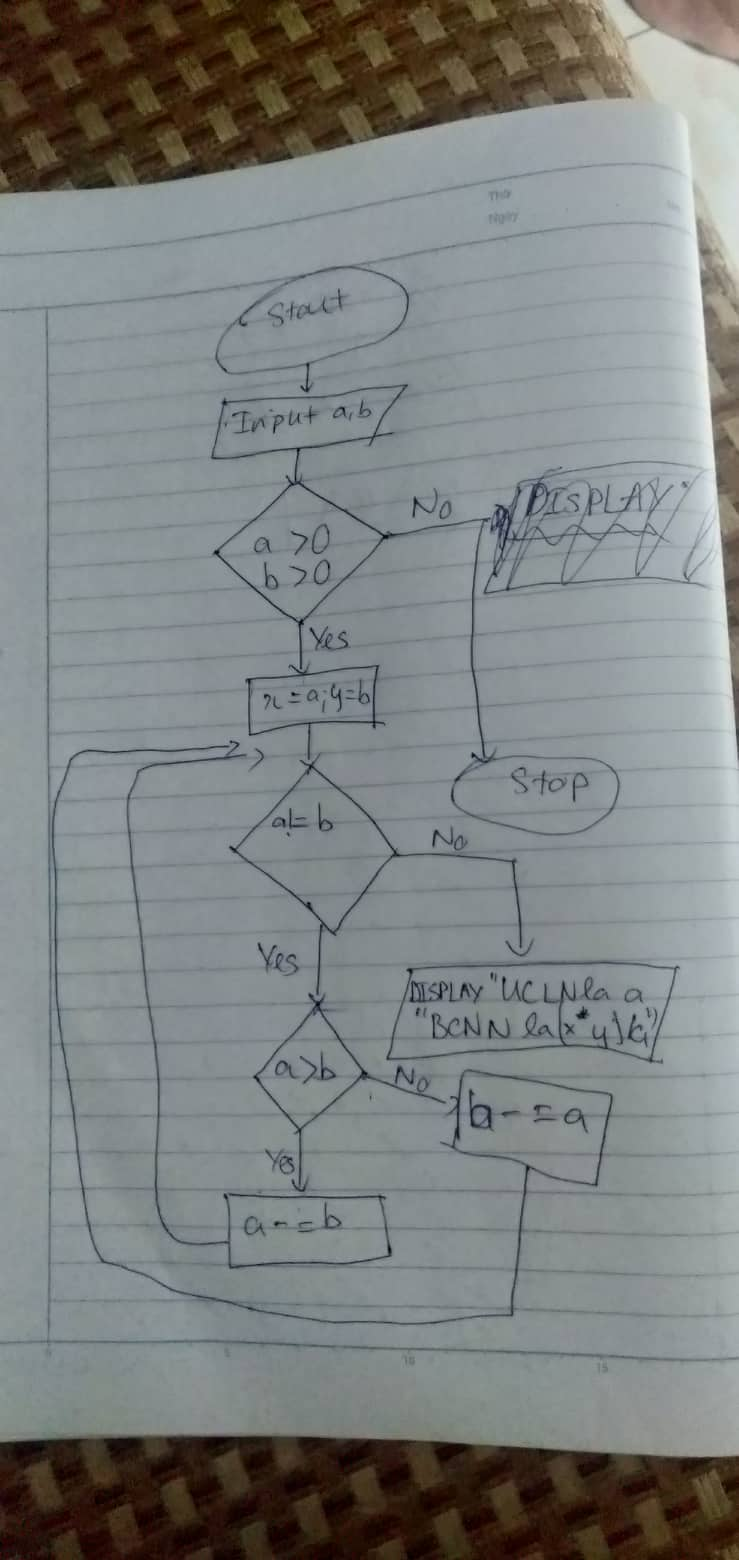 Thứ
Ngày
Start
Input a,b
a >0
b >0
No
DISPLAY
Yes
x = a; y = b
Stop
a != b
No
Yes
DISPLAY "UCLN la a
"BCNN la (x*y)/a")
a>b
No
b -= a
Yes
a -= b
5
10
15